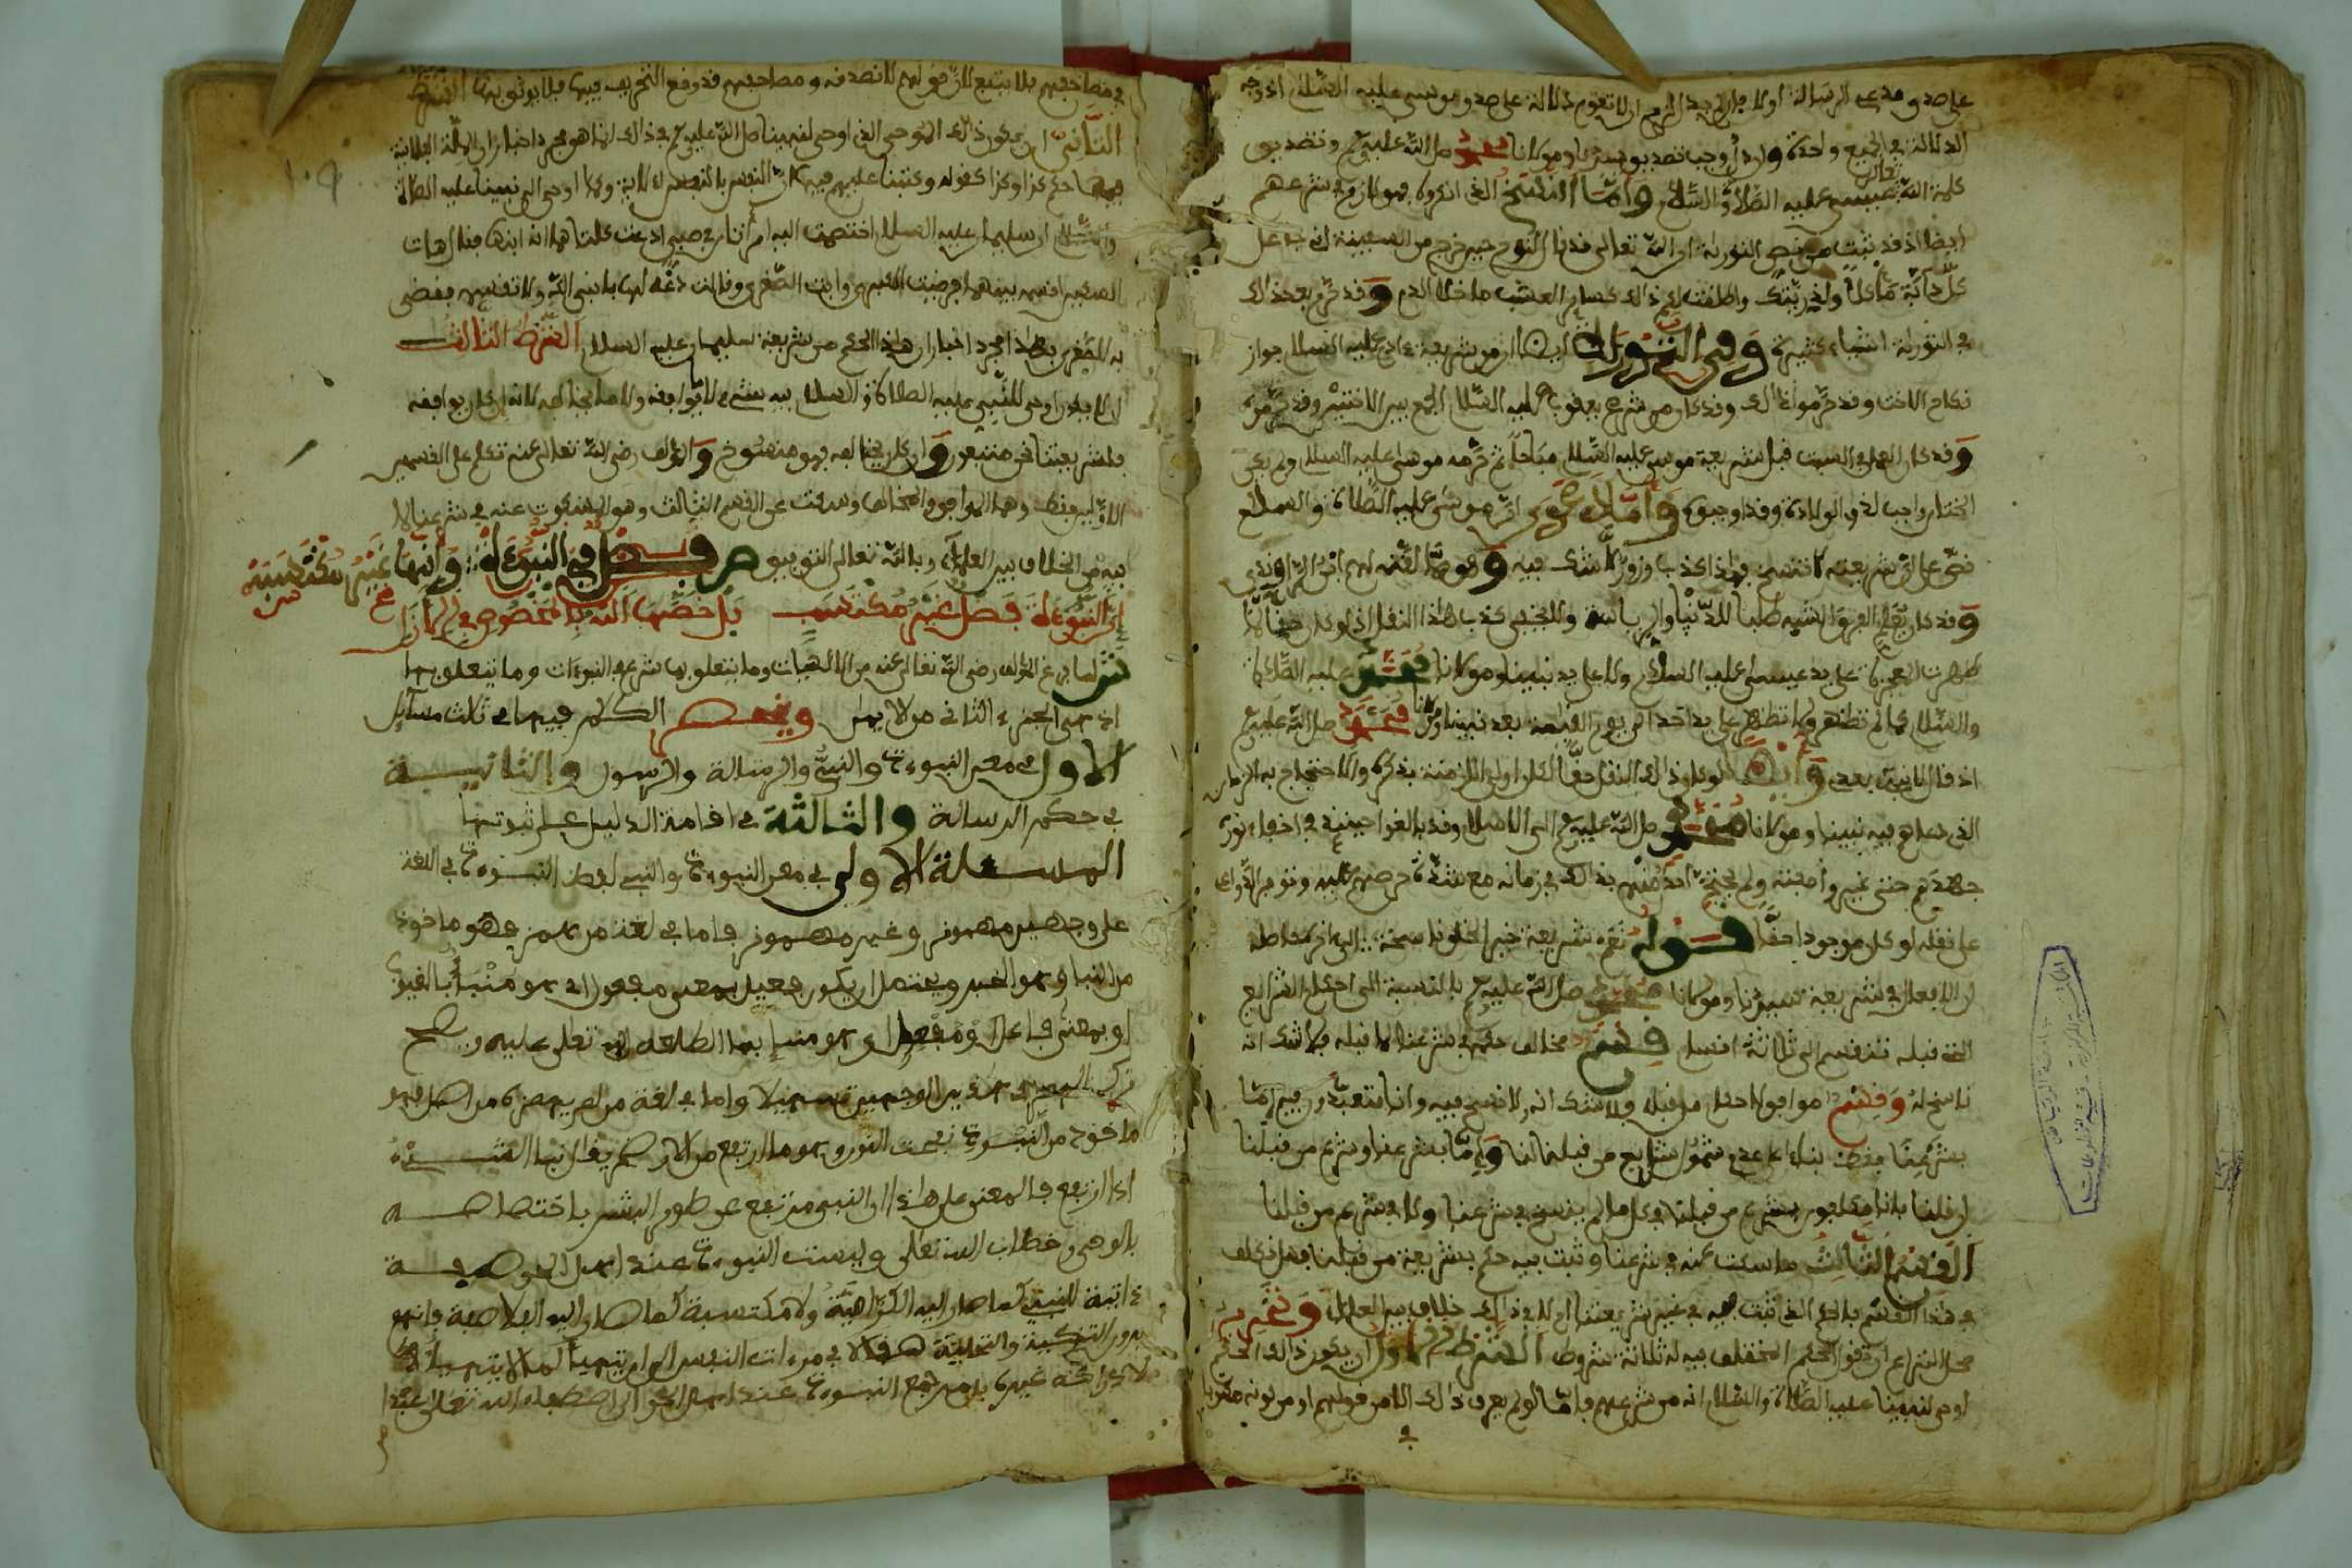 على صدق مدعي الرسالة او لا جاز ان لا تقوم دلالة على صدق موسى عليه السلام اذ وجه
الدلالة في الجميع واحدة وان وجب تصديق سيدنا ومولانا محمد صلى الله عليه وسلم وتصديق
كلمة الله تعالى عيسى عليه الصلاة والسلام واما النسخ الذي انكروه فهو لازم في شرعهم
ايضا اذ قد ثبت من نص التورية ان الله تعالى قد قال لنوح حين خرج من السفينة اني جاعل
كل دابة مأكلا ولذريتك واطلقت لكم ذلك كسائر العشب ما خلا الدم وقد حرم بعد ذلك
في التورية اشياء كثيرة وفي التورية ايضا ان من شريعة ءادم عليه السلام جواز
نكاح الاخت وقد حرموا ذلك وقد كان من شرع يعقوب عليه السلام الجمع بين الاختين وقد حرموه
وقد كان العمل في السبت قبل شريعة موسى عليه السلام مباحا ثم حرمه موسى عليه السلام ولم يكن
الختان واجبا لدى الولادة وقد اوجبوه واما دعوى ان موسى عليه الصلاة والسلام
نص على ان شريعته لا تنسخ فهذا كذب وزور لا شك فيه وهو مما لقنه لهم ابن الراوندي
وقد كان يعلم الفرق الشبه طلبا للدنيا والرياسة والمخفي كذب هذا النقل اذ لو كان حقا لما
ظهرت المعجزة على يد عيسى عليه السلام ولا على يد نبينا ومولانا محمد عليه الصلاة
والسلام كما لم تظهر ولا تظهر على يد احد الى يوم القيمة بعد نبينا ومولانا محمد صلى الله عليه وسلم
اذ قال لا نبي بعدي وايضا لو كان ذلك النقل حقا لكان اولى الازمنة بذكره والاحتجاج به الزمان
الذي دعاهم فيه نبينا ومولانا محمد صلى الله عليه وسلم الى الاسلام وقد بالغوا حينئذ في اخفاء نوره
جهدهم حتى غيروا صفته ولم يحتج احد منهم بذلك في زمانه مع شدة حرصهم عليه وتوفر الدواعي
على نقله لو كان موجودا حقا قوله نعم شريعة خير الخلق ناسخة الى اخر
الافعال في شريعة سيدنا ومولانا محمد صلى الله عليه وسلم بالنسبة الى احكام الشرايع
التي قبله تنقسم الى ثلاثة اقسام قسم مخالف حكمه في شرعنا لما قبله فلا شك انه
ناسخ له وقسم موافق لاحكام من قبله فلا شك انه لا نسخ فيه وانا نتعبد فيه اما
بشرعنا فقط بناء على عدم شمول شرايع من قبلنا لنا واما بشرعنا وشرع من قبلنا
ان قلنا بانا مكلفون بشرع من قبلنا في كل ما لم ينسخ في شرعنا ولا في شرع من قبلنا
القسم الثالث ما سكت عنه في شرعنا وثبت فيه حكم بشريعة من قبلنا فهل نكلف
في هذا القسم بالحكم الذي ثبت فيه في غير شريعتنا ام لا في ذلك خلاف بين العلماء وتحرير
محل النزاع ان في الحكم المختلف فيه له ثلاثة شروط الشرط الاول ان يكون ذلك الحكم
اوحي لنبينا عليه الصلاة والسلام انه من شرعهم فاما لو لم يعرف ذلك الا من قولهم او من كونه مقررا
في
في مصاحفهم فلا يتبع لان قولهم لا نصدقه ومصاحفهم قد وقع التحريف فيها فلا يوثق بها الشرط
الثاني ان يكون ذلك الموحى الذي اوحي لنبينا صلى الله عليه وسلم في ذلك انما هو مجرد اخبار ان الملة الفلانية
فيها حكم كذا وكذا كقوله وكتبنا عليهم فيها ان النفس بالنفس الاية وكما اوحي الى نبينا عليه الصلاة
والسلام ان سليمان عليه السلام اختصمت اليه امرأتان في صبي ادعت كلتاهما انه ابنها فقال هات
السكين اقسمه بينهما فرضيت الكبرى وابت الصغرى وقالت دعه لها يا نبي الله ولا تقسمه فقضى
به للصغرى فهذا مجرد اخبار ان هذا الحكم من شريعة سليمان عليه السلام الشرط الثالث
ان لا يكون اوحي للنبي عليه الصلاة والسلام فيه شرع لا يوافقه ولا ما يخالفه لانه ان كان يوافقه
فلشريعتنا نحن متبعون وان كان يخالفه فهو منسوخ والمؤلف رضي الله تعالى عنه تكلم على القسمين
الاولين فقط وهما الموافق والمخالف وسكت عن القسم الثالث وهو المسكوت عنه في شرعنا لما
فيه من الخلاف بين العلماء وبالله تعالى التوفيق ص فصل في النبوءة وانها غير مكتسبة
ان النبوءة فضل غير مكتسب بل خصها الله بالمخصوص في الازل
ش لما فرغ المؤلف رضي الله تعالى عنه من الالهيات وما يتعلق بها شرع في النبوءات وما يتعلق بها
اذ هي الجزء الثاني من الايمان وينحصر الكلام فيها في ثلاث مسائل
الاولى في معنى النبوءة والنبي والرسالة والرسول والثانية
في حكم الرسالة والثالثة في اقامة الدليل على ثبوتها
المسئلة الاولى في معنى النبوءة والنبي لفظ النبوءة في اللغة
على وجهين مهموز وغير مهموز فاما في لغة من همز فهو ماخوذ
من النبا وهو الخبر ويحتمل ان يكون فعيل بمعنى مفعول اي هو منبأ بالغيوب
او بمعنى فاعل او مفعل اي هو منبئ بما اطلعه الله تعالى عليه ويصح
ترك الهمز في هذين الوجهين تسهيلا واما في لغة من لم يهمزه من اصله فهو
ماخوذ من النبوة بفتح النون وهو ما ارتفع من الارض يقال نبا الشيء
اذا ارتفع فالمعنى على هذا ان النبي مرتفع عن طور البشر باختصاصه
بالوحي وخطاب الله تعالى وليست النبوءة عند اهل الحق صفة
ذاتية للنبي كما صار اليه الكرامية ولا مكتسبة كما صار اليه الفلاسفة فانهم
يرون التزكية والتحلية صقلا في مرءات النفس الى ان يتهيأ لها ما لا يتهيأ
لادراكه غيرها بل مرجع النبوءة عند اهل الحق الى اصطفاء الله تعالى عبدا